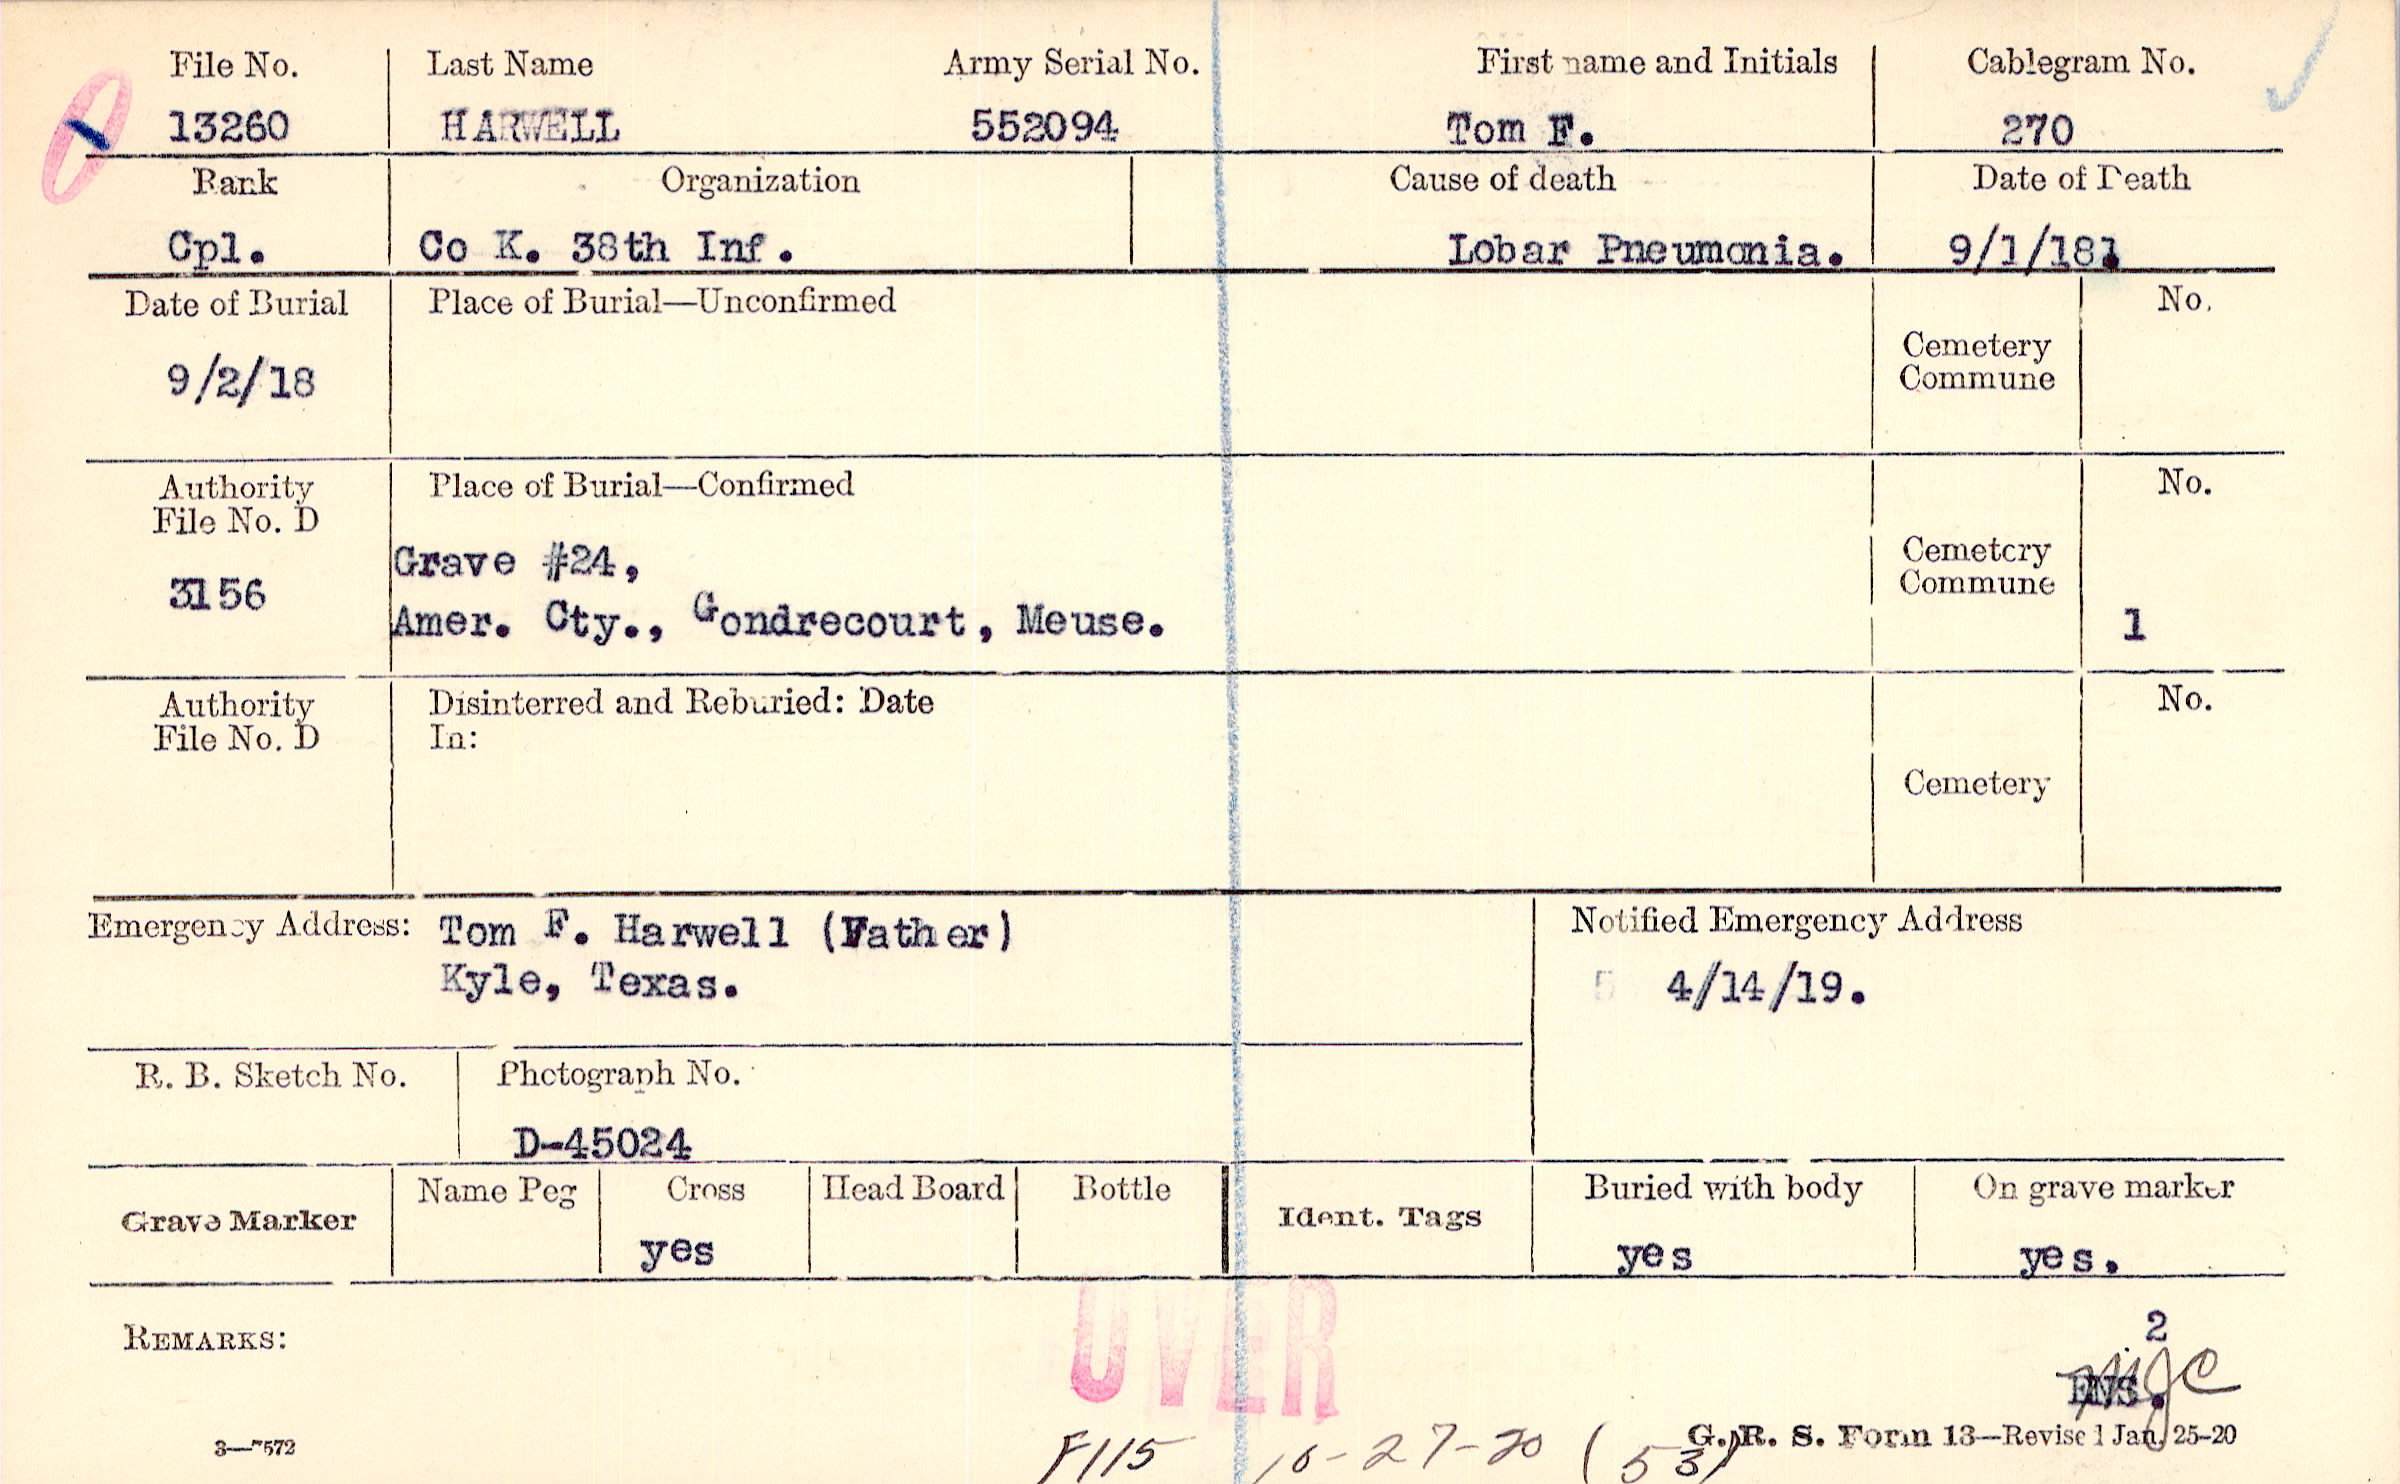 File No. Last Name Army Serial No. First name and Initials Cablegram No.
13260 HARWELL 552094 Tom F. 270
Rank Organization Cause of death Date of Death
Cpl. Co K. 38th Inf. Lobar Pneumonia. 9/1/18.
Date of Burial Place of Burial—Unconfirmed No.
Cemetery
Commune
9/2/18
Authority Place of Burial—Confirmed No.
File No. D
Cemetery
Commune
Grave #24,
3156
Amer. Cty., Gondrecourt, Meuse. 1
Authority Disinterred and Reburied: Date No.
File No. D In:
Cemetery
Emergency Address: Tom F. Harwell (Father) Notified Emergency Address
Kyle, Texas. 4/14/19.
R. B. Sketch No. Photograph No.
D-45024
Grave Marker Name Peg Cross Head Board Bottle Ident. Tags Buried with body On grave marker
yes yes yes.
OVER
REMARKS:
2
3—7572 G. R. S. Form 13—Revised Jan. 25-20
F115 10-27-20 (53)